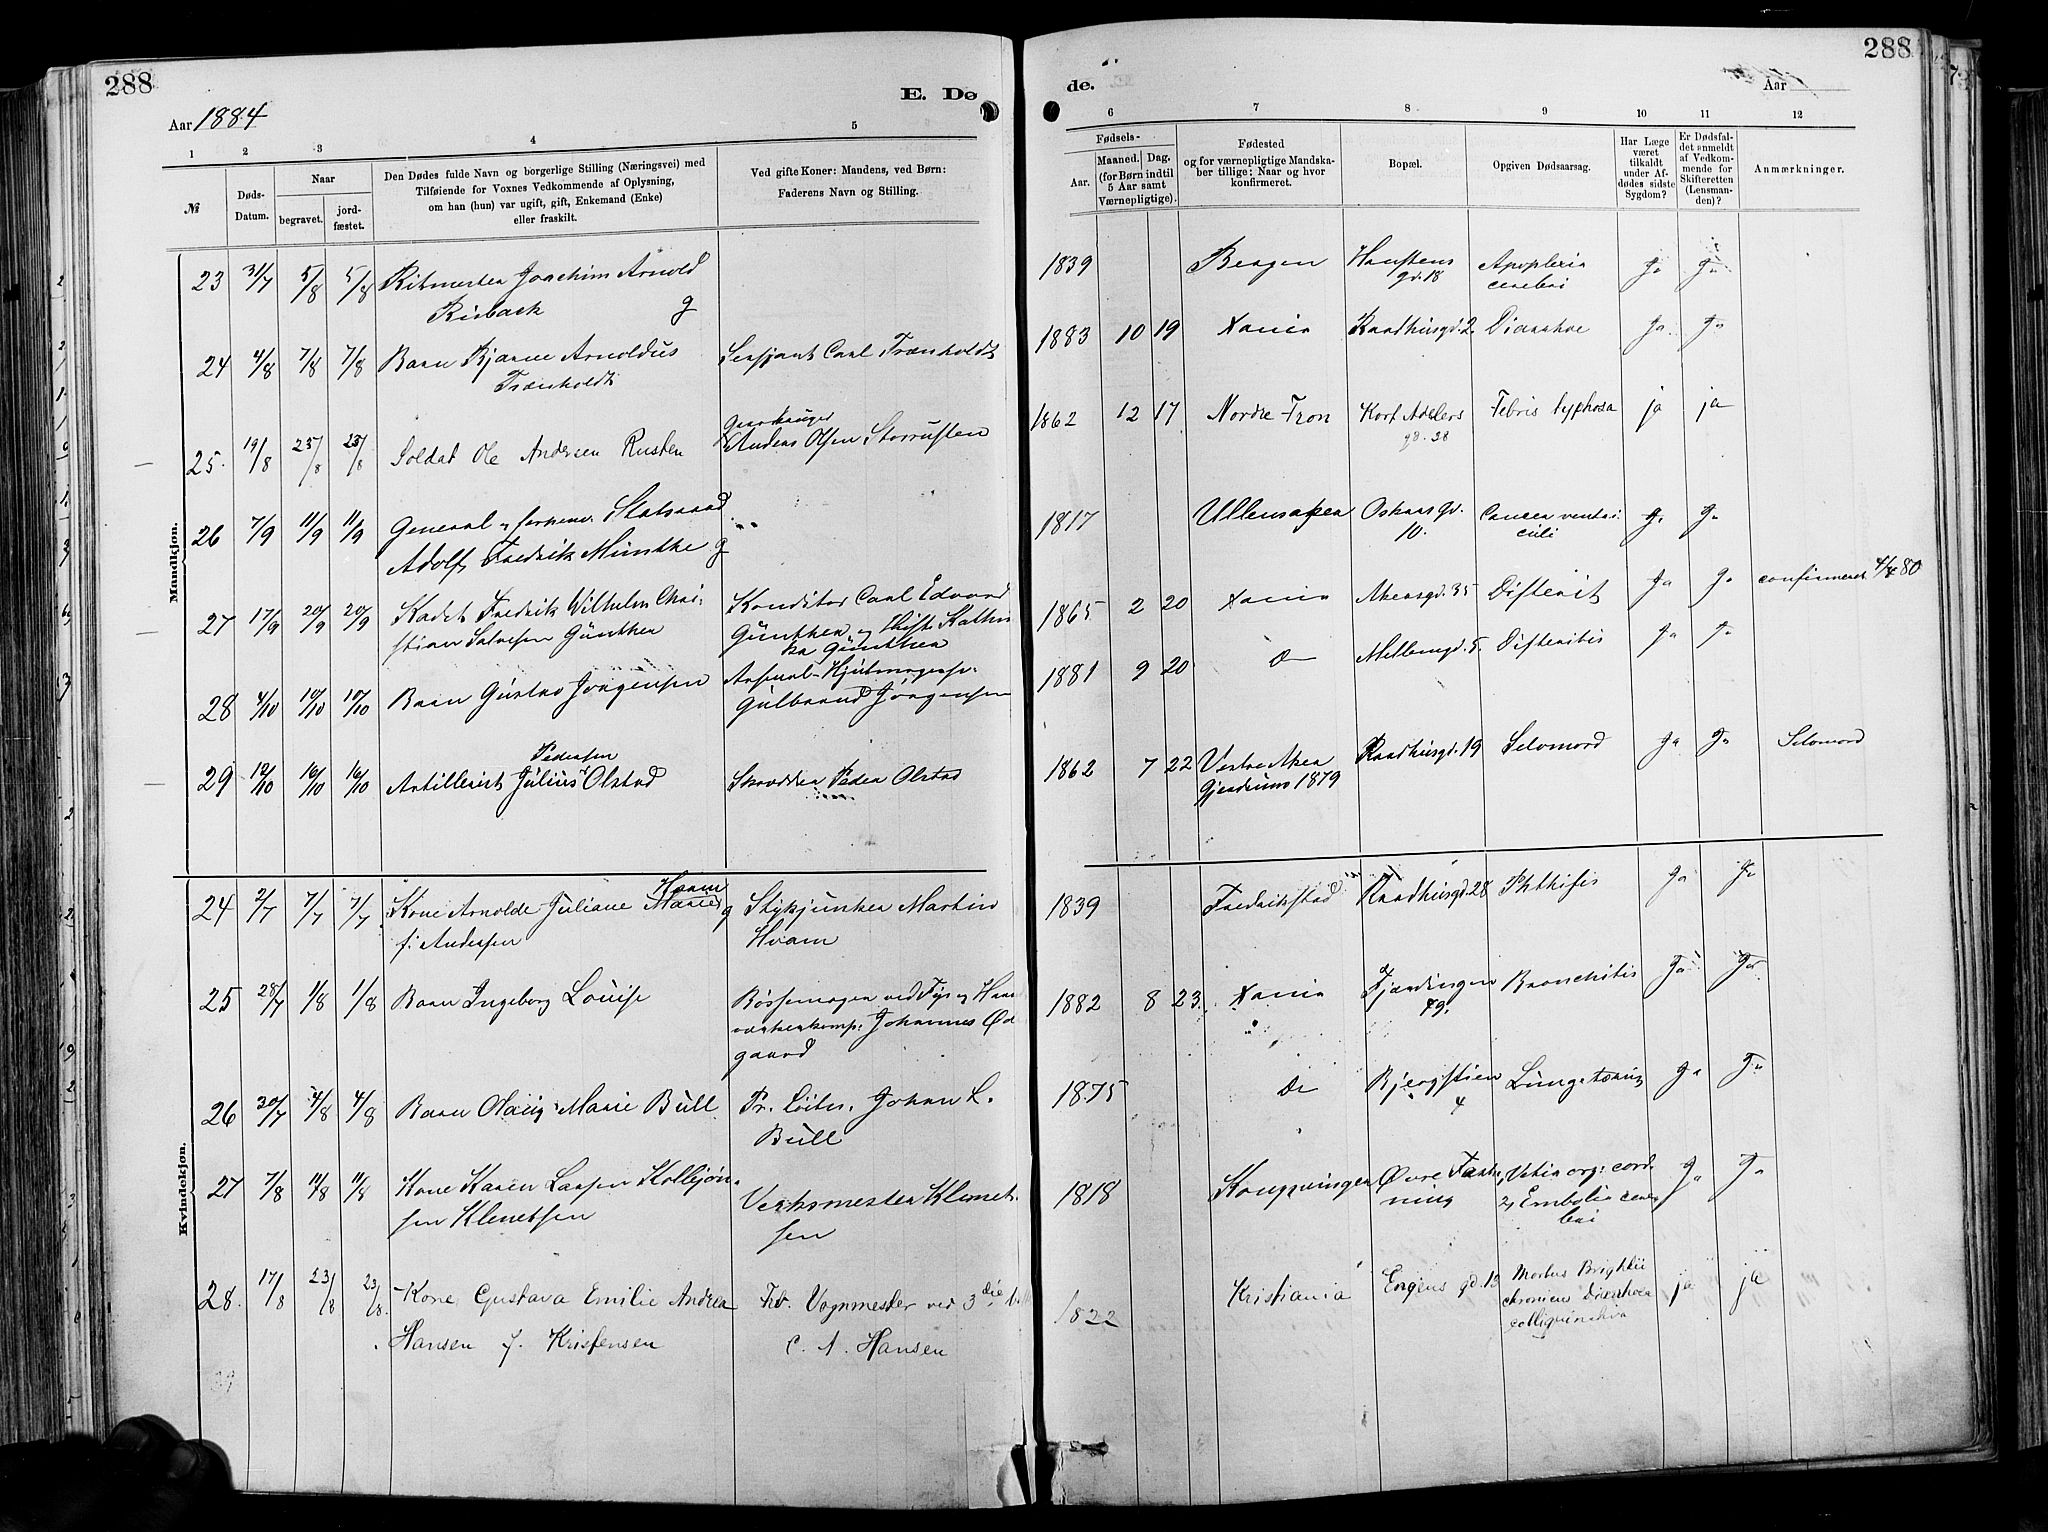 288
288
Aar 1884
E. Dø
de.
Aar
1 2 3 4 5 6 7 8 9 10 11 12
№
Døds-
Datum.
Naar
begravet.
jord-
fæstet.
Den Dødes fulde Navn og borgerlige Stilling (Næringsvei) med
Tilføiende for Voxnes Vedkommende af Oplysning,
om han (hun) var ugift, gift, Enkemand (Enke)
eller fraskilt.
Ved gifte Koner: Mandens, ved Børn:
Faderens Navn og Stilling.
Fødsels-
Aar.
Maaned. Dag.
(for Børn indtil
5 Aar samt
Værnepligtige).
Fødested
og for værnepligtige Mandska-
ber tillige: Naar og hvor
konfirmeret.
Bopæl.
Opgiven Dødsaarsag.
Har Læge
været
tilkaldt
under Af-
dødes sidste
Sygdom?
Er Dødsfal-
det anmeldt
af Vedkom-
mende for
Skifteretten
(Lensman-
den)?
Anmærkninger.
Mandkjøn.
23 31/7 5/8 5/8 Ritmester Joachim Arnold g 1839 Bergen Haustens gd. 18 Apoplexia cerebri Ja Ja
24 4/8 7/8 7/8 Barn Bjarne Arnoldus Trænholdt Sersjant Carl Trænholdt 1883 10 19 Xania Raadhusgd. 2 Diarrhoe Ja Ja
25. 19/8 25/8 25/8 Soldat Ole Andersen Rusten Gaardbruger Anders Olsen Storrusten 1862 12 17 Nordre Fron Kort Adelers gd. 38 Febris typhosa ja ja
26 7/9 11/9 11/9 General Statsraad Adolf Fredrik Munthe g 1817 Ullensaker Oskarsgd. 10. Cancer ventriculi Ja Ja
27 17/9 20/9 20/9 Kadet Fredrik Wilhelm Christian Salvesen Günther Konditor Carl Edvard Günther og Kathinka Günther 1865 2 20 Xania Akersgd. 35 Difterit Ja Ja confirmeret 4/4 80
28 4/10 10/10 10/10 Barn Gustav Jørgensen Arsenal-Hjulmagersv. Gulbrand Jørgensen 1881 9 20 Do Møllergd. 5. Difteritis Ja Ja
29 12/10 16/10 16/10 Artillerist Julius Pedersen Olstad Skrædder Peder Olstad 1862 7 22 Vestre Aker Gjerdrum 1879 Raadhusgd. 19 Selvmord Ja Ja Selvmord
Kvindekjøn.
24 2/7 7/7 7/7 Kone Arnolde Juliane Marie Hvam g f: Andersen Stykjunker Martin Hvam 1839 Fredrikstad Raadhusgd. 28 Phthisis Ja Ja
25 28/7 1/8 1/8 Barn Ingeborg Louise Bøssemager ved Johannes Ødegaard 1882 8 23. Xania Fjerdingen 49. Bronchitis Ja Ja
26 30/7 4/8 4/8 Barn Olaug Marie Bull Pr. Løitn. Johan L. Bull 1875 Do Bjergstien 4 Lungetæring Ja Ja
27 7/8 11/8 11/8 Kone Karen Larsen Kollbjørnsen Klemetsen Verksmester Klemetsen 1818 Kongsvinger Øvre Fæstning Vitia org: cord. 2, Embolia cerebri Ja Ja
28. 17/8 23/8 23/8. Kone Gustava Emilie Andrea Hansen f. Kristensen Fhv. Vognmester ved 3die C. A. Hansen 1822 Kristiania Engens gd. 13 Morbus Brightii chronicus Diarrhoea colliquativa ja ja